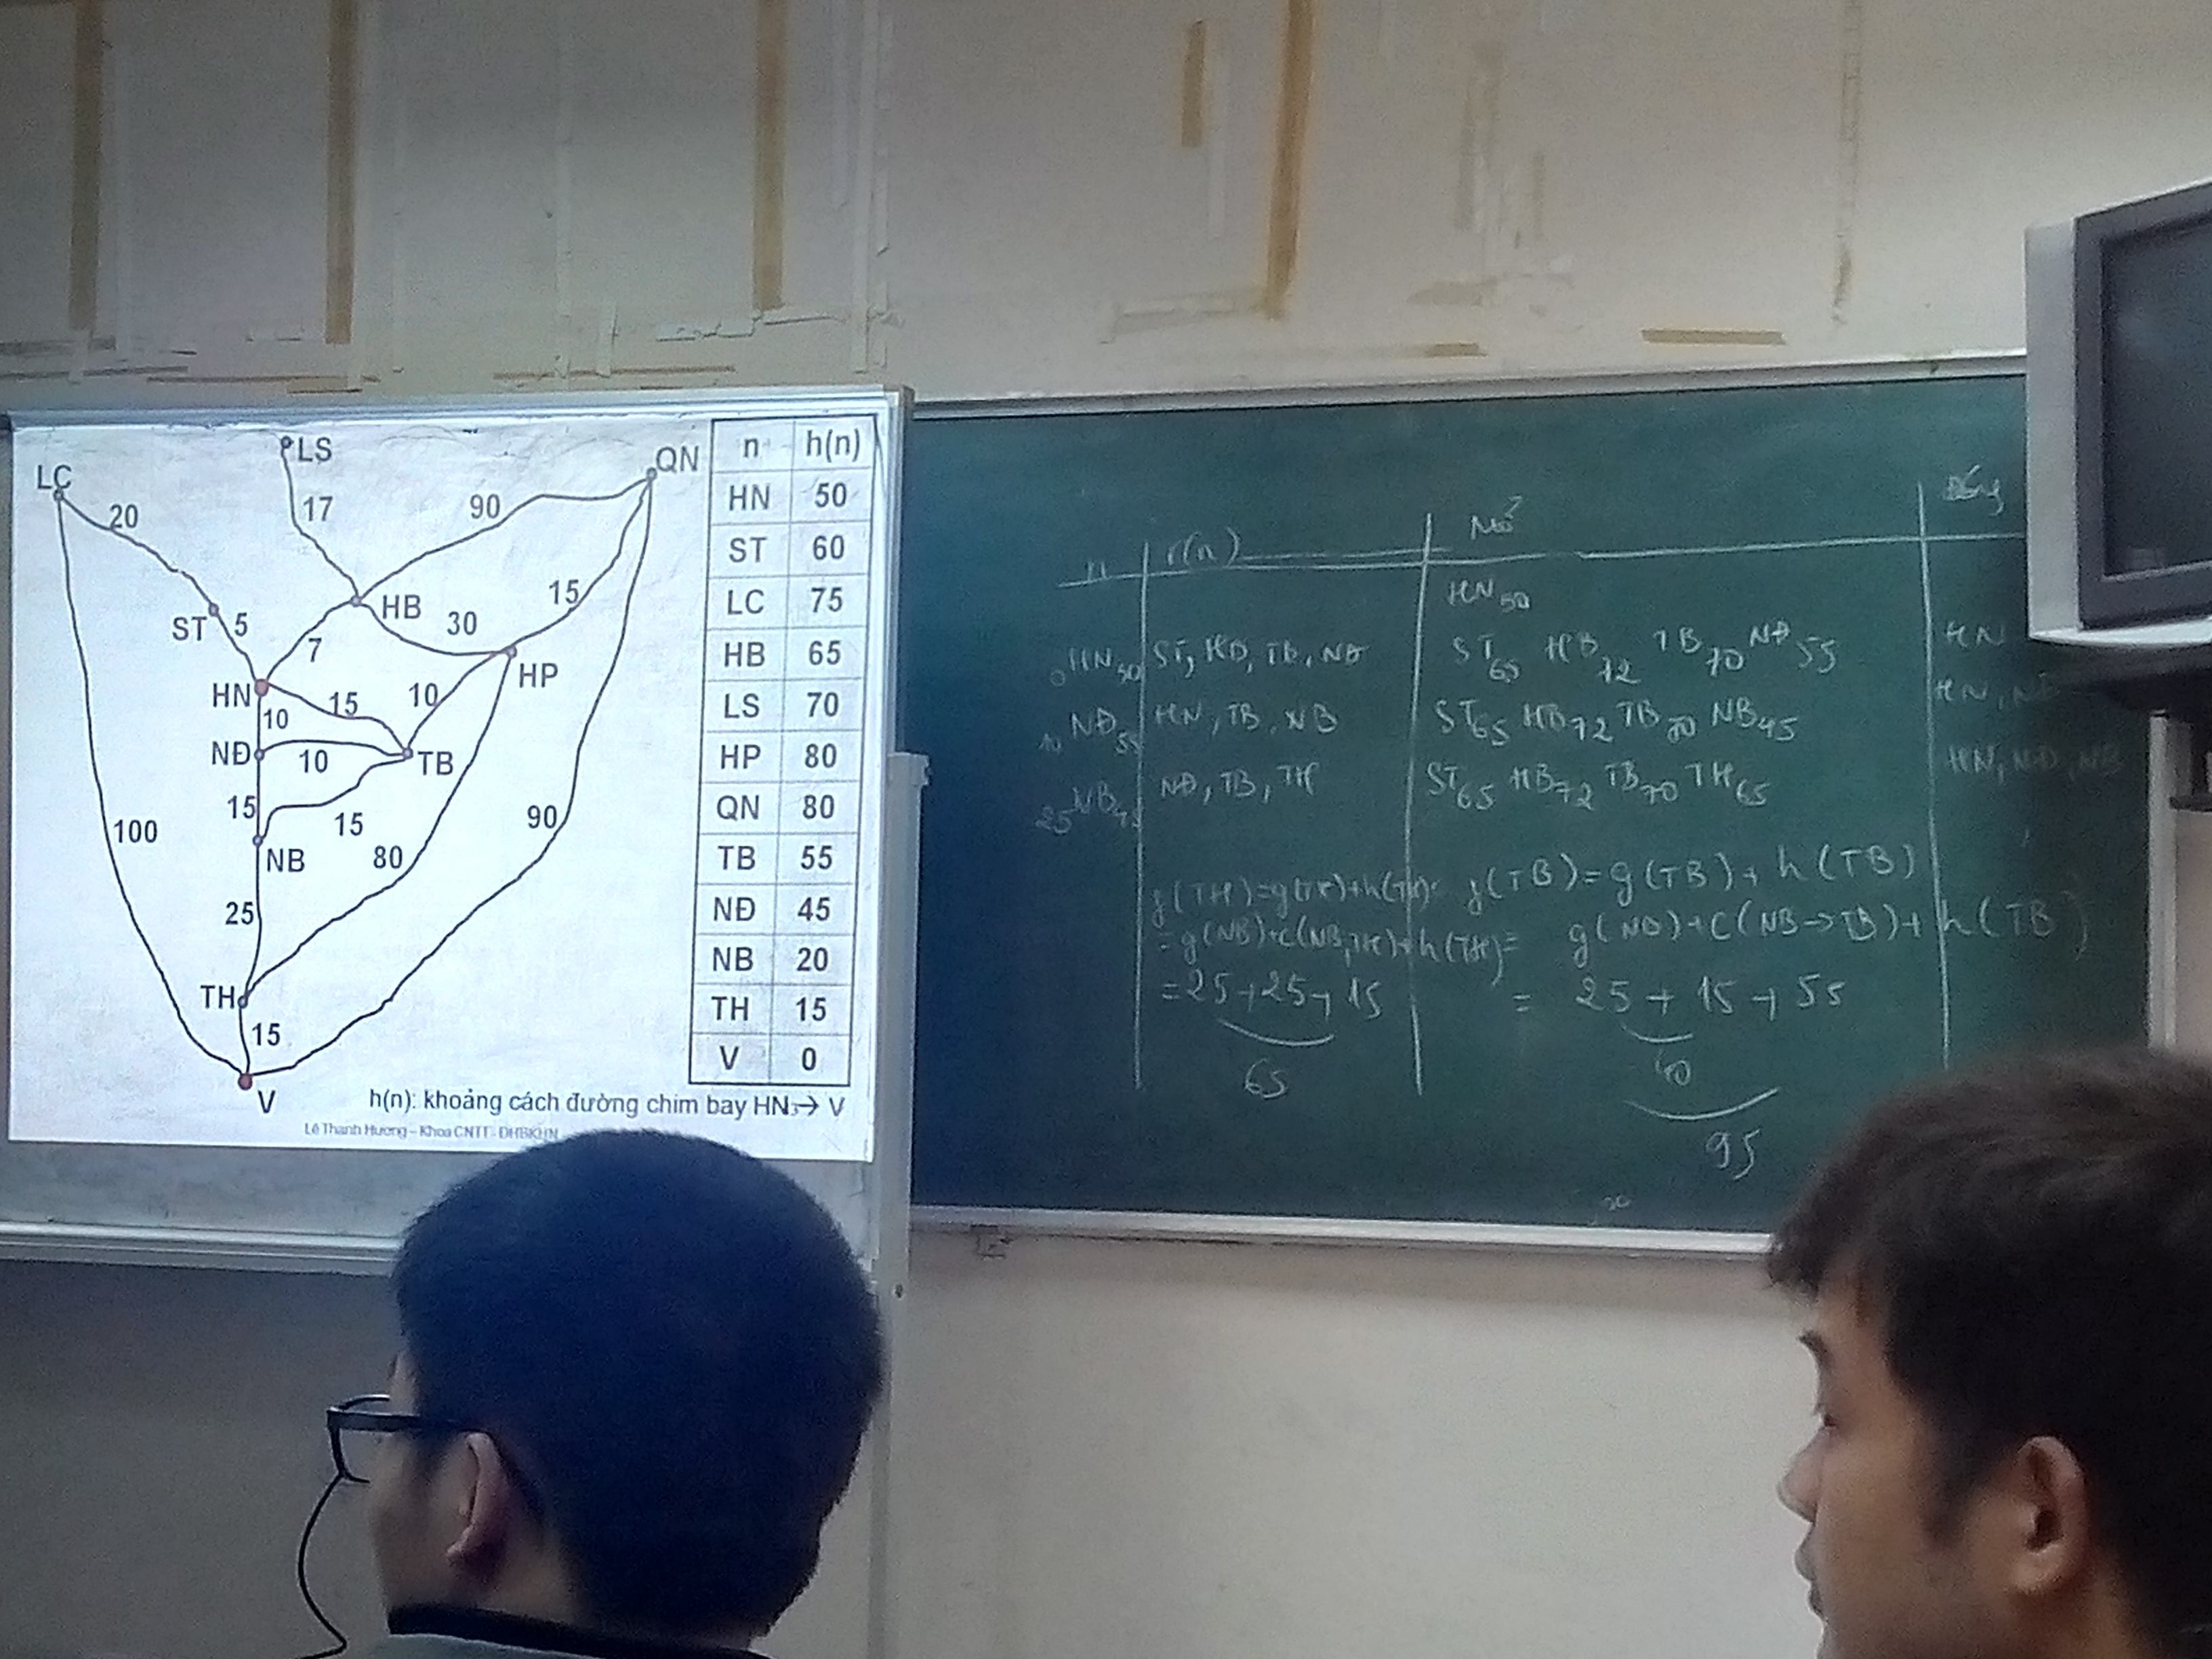 LS
LC
QN
20
17
90
HB
30
15
ST
5
7
HP
HN
15
10
10
NĐ
10
TB
15
15
100
90
NB
80
25
TH
15
V
n h(n)
HN 50
ST 60
LC 75
HB 65
LS 70
HP 80
QN 80
TB 55
NĐ 45
NB 20
TH 15
V 0
h(n): khoảng cách đường chim bay HN → V
Lê Thanh Hương – Khoa CNTT - ĐHBKHN
n r(n) Mở Đóng
HN 50
0 HN 50 ST, HB, TB, NĐ ST 65 HB 72 TB 70 NĐ 55 HN
10 NĐ 55 HN, TB, NB ST 65 HB 72 TB 70 NB 45 HN, NĐ
25 NB 45 NĐ, TB, TH ST 65 HB 72 TB 70 TH 65 HN, NĐ, NB
f(TH)=g(TH)+h(TH)
= g(NB)+c(NB,TH)+h(TH)
=25+25+15
65
f(TB)=g(TB)+h(TB)
= g(NB)+C(NB→TB)+h(TB)
= 25+15+55
40
95